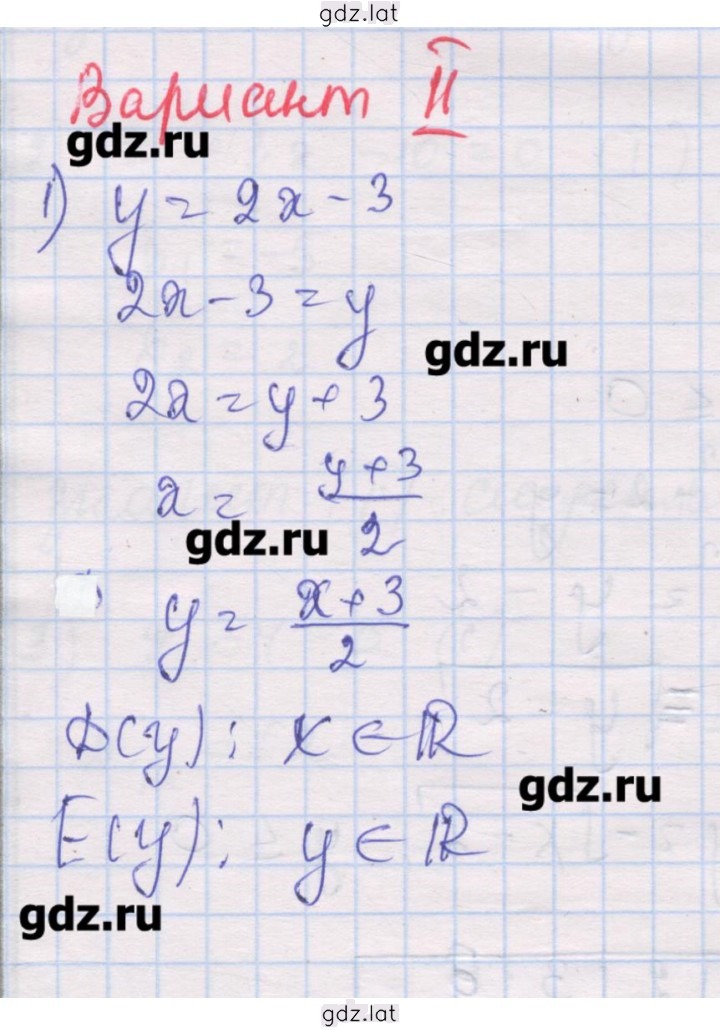 gdz.lat
Вариант II
gdz.ru
1) y = 2x - 3
2x - 3 = y
gdz.ru
2x = y + 3
x = (y + 3)/2
gdz.ru
y = (x + 3)/2
D(y): x ∈ ℝ
gdz.ru
E(y): y ∈ ℝ
gdz.ru
gdz.lat